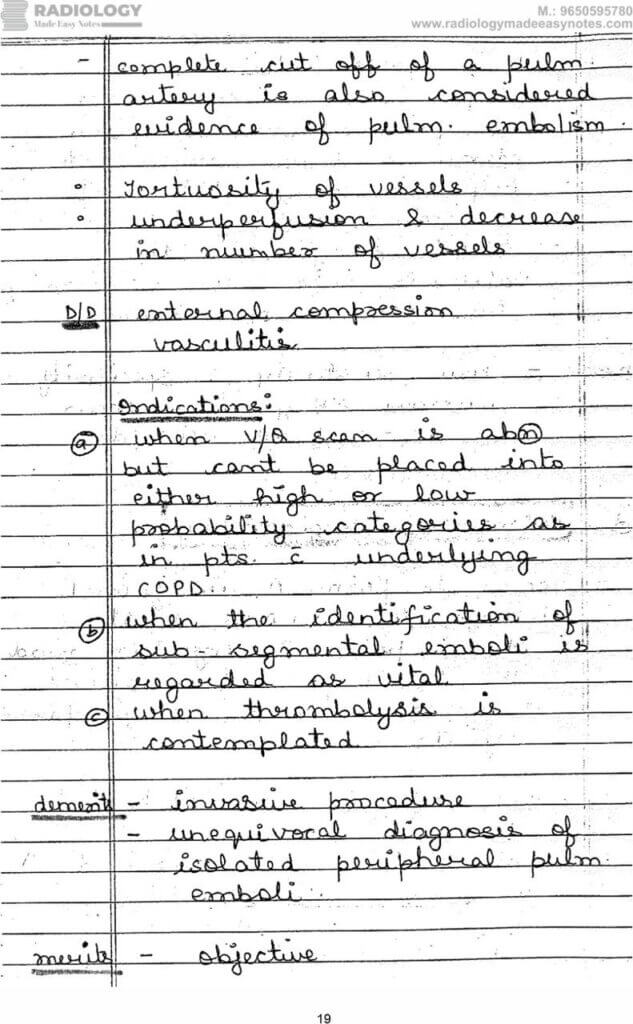 RADIOLOGY
Made Easy Notes
M.: 9650595780
www.radiologymadeeasynotes.com
- complete cut off of a pulm.
artery is also considered
evidence of pulm. embolism.
• Tortuosity of vessels
• underperfusion & decrease
in number of vessels
D/D external compression
vasculitis
Indications:
(a) when V/Q scan is abn
but cant be placed into
either high or low
probability categories as
in pts. c̄ underlying
COPD.
(b) when the identification of
sub-segmental emboli is
regarded as vital
(c) when thrombolysis is
contemplated
demerits - invasive procedure
- unequivocal diagnosis of
isolated peripheral pulm.
emboli.
merits - objective
19